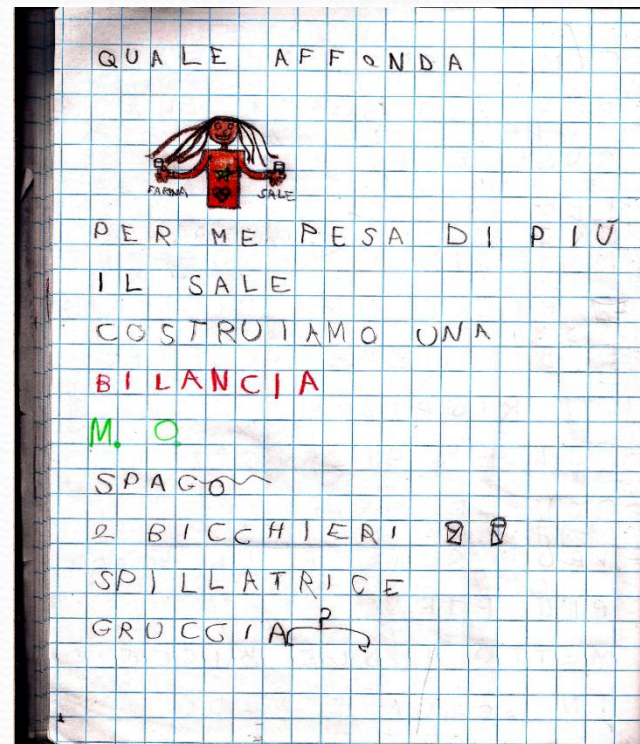 QUALE AFFONDA
FARINA SALE
PER ME PESA DI PIÙ
IL SALE
COSTRUIAMO UNA
BILANCIA
M. O.
SPAGO
2 BICCHIERI
SPILLATRICE
GRUCCIA